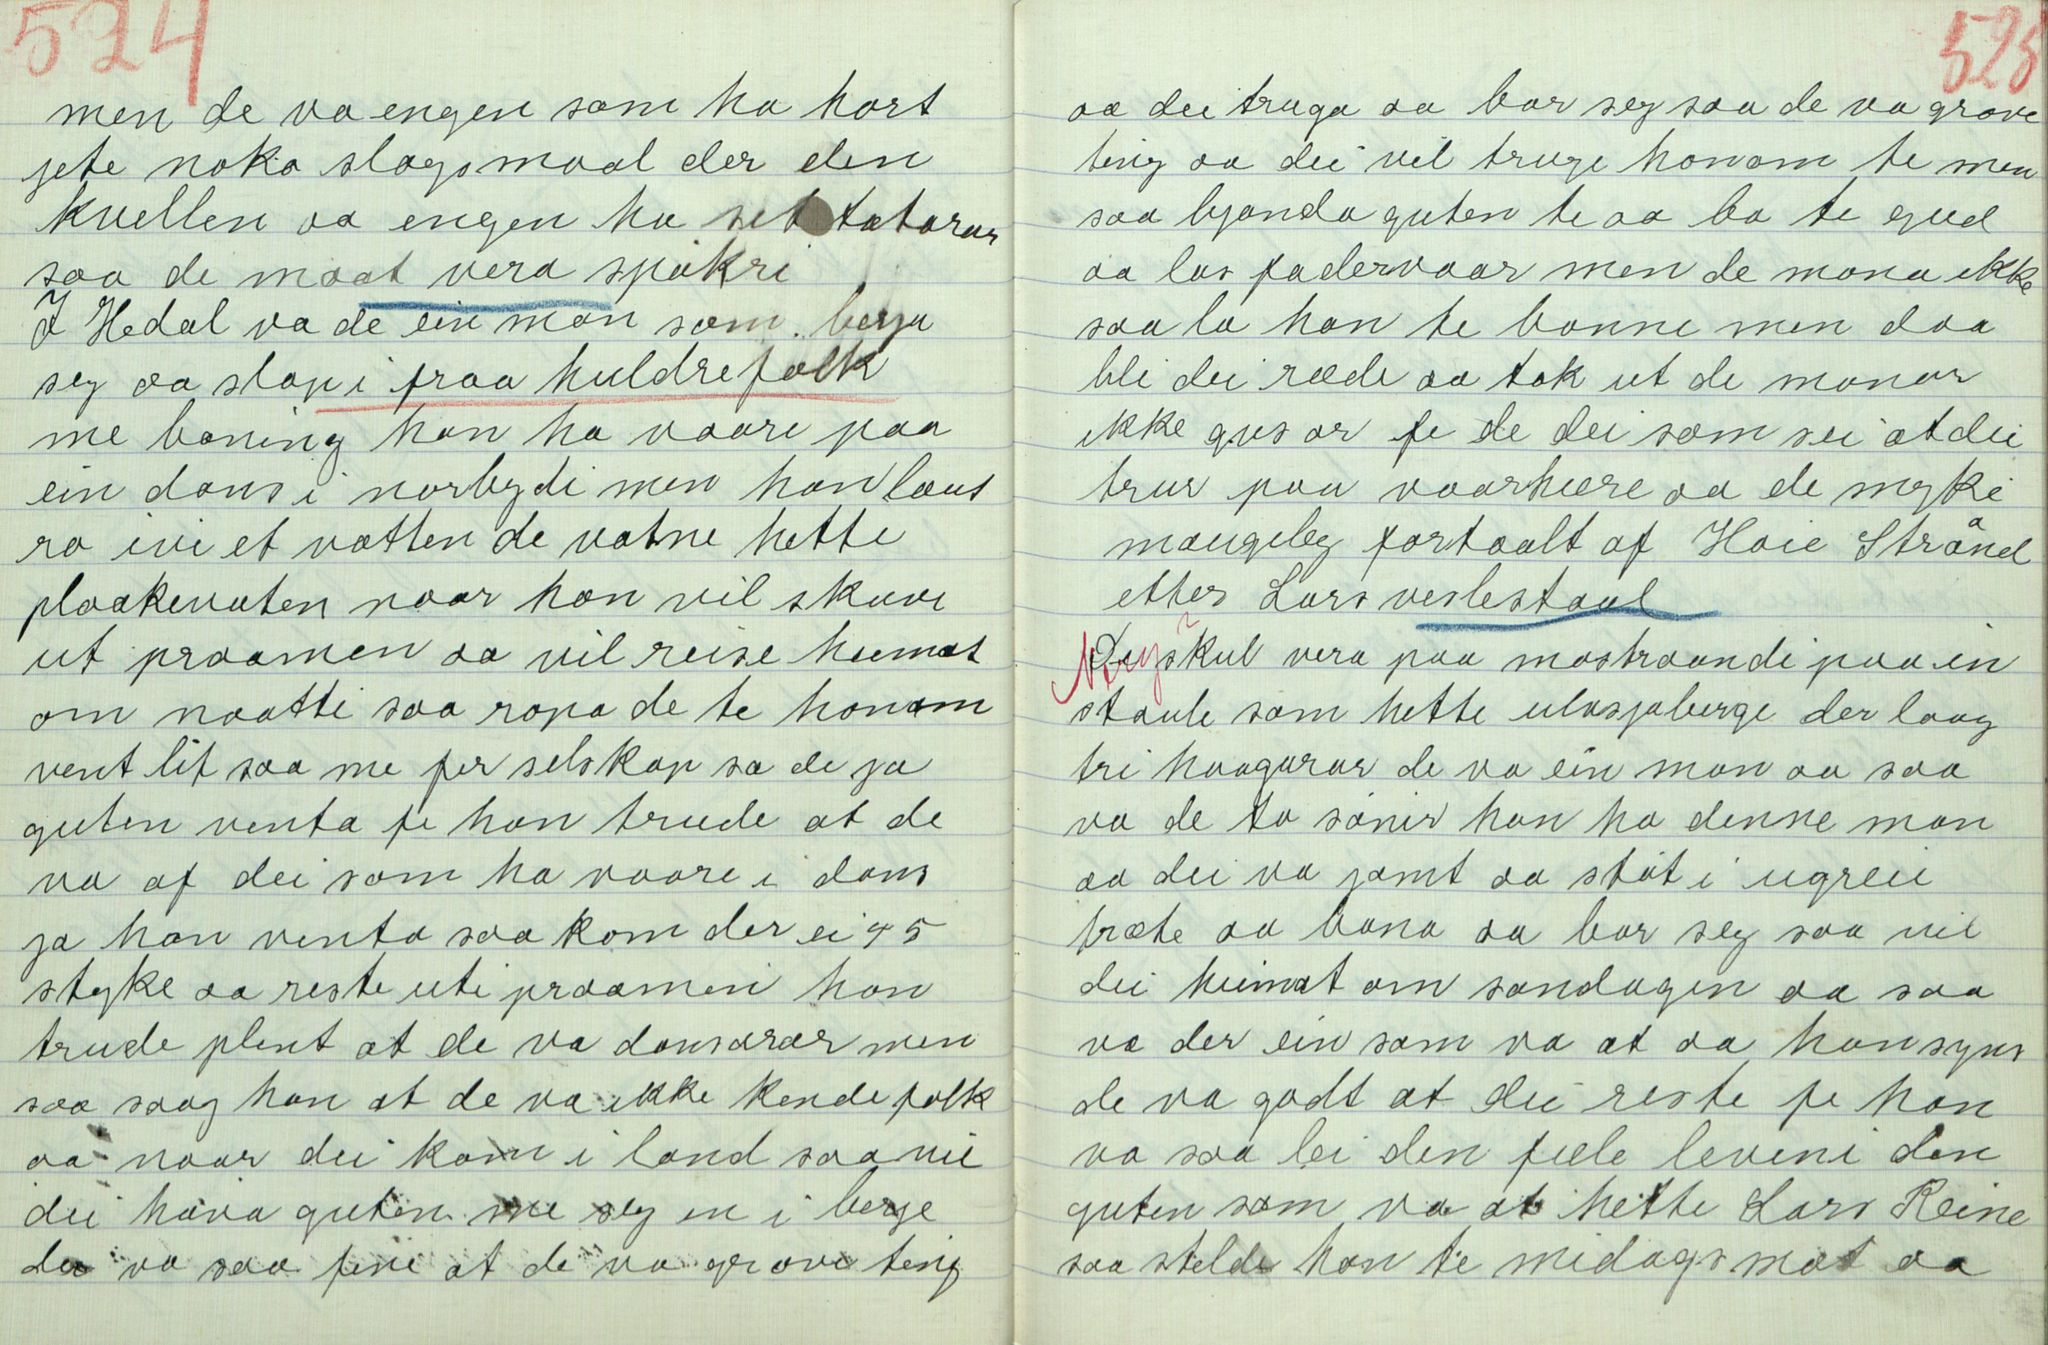 524
men de va engen som ha hørt
jete noko slagsmaal der den
kvellen oa engen ha set tatarar
saa de maat vera spøkri
I Hedal va de ein man som berja
seg oa slap i fraa huldrefolk
me bøning han ha vaare paa
ein dans i norbygdi men han laut
ro ivi et vatten de vatne hette
plaakevaten naar han vil skuve
ut praamen oa vil reise heimat
om naatti saa ropa de te honom
vent lit saa me fer selskap sa de ja
guten venta fe han trude at de
va af dei som ha vaare i dans
ja han venta saa kom der ei 4 5
styke oa reste uti praamen han
trude plent at de va dansarar men
saa saag han at de va ikke kende folk
oa naar dei kom i land saa vil
dei hava guten me seg en i berge
der va saa fine at de va grove ting
525
oa dei truga oa bar seg saa de va grove
ting oa dei vil truge honom te men
saa byonda guten te oa ba te gud
oa las fadervaar men de mona ikke
saa la han te bonne men daa
bli dei ræde oa tok ut de monar
ikke gus or fe de dei som sei at dei
trur paa vaarheere oa de myke
mougeleg fortaalt af Hoie Strånd
etter Lars veslestaul
Nøry? skul vera paa mostraandi paa ein
staule som hette ulasjaberge der laag
tri haagarar de va ein man oa saa
va de to sønir han ha denne man
oa dei va jamt oa støt i ugreii
træte oa bana oa bar seg saa vil
dei heimat om søndagen oa saa
va der ein som va at oa han syns
de va godt at dei reste fe han
va saa lei den fæle leveni den
guten som va at hette Lars Reine
saa stelde han te midagsmat oa